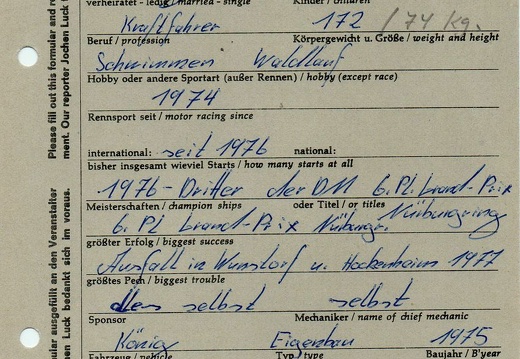 verheiratet - ledig / married - single Kinder / children
Kraftfahrer 172 / 74 kg.
Beruf / profession Körpergewicht u. Größe / weight and height
Schwimmen Waldlauf
Hobby oder andere Sportart (außer Rennen) / hobby (except race)
1974
Rennsport seit / motor racing since
international: seit 1976 national:
bisher insgesamt wieviel Starts / how many starts at all
1976 - Dritter der DM 6. Pl. Grand-Prix
Meisterschaften / champion ships oder Titel / or titles Nürburgring
6. Pl. Grand-Prix Nürburgr.
größter Erfolg / biggest success
Ausfall in Wunstorf u. Hockenheim 1977
größtes Pech / biggest trouble
selbst selbst
Sponsor Mechaniker / name of chief mechanic
König Eigenbau 1975
Fahrzeug / vehicle Typ / type Baujahr / B'year
Please fill out this formular and
ment. Our reporter Jochen Luck
ular ausgefüllt an den Veranstalter
en Luck bedankt sich im voraus.